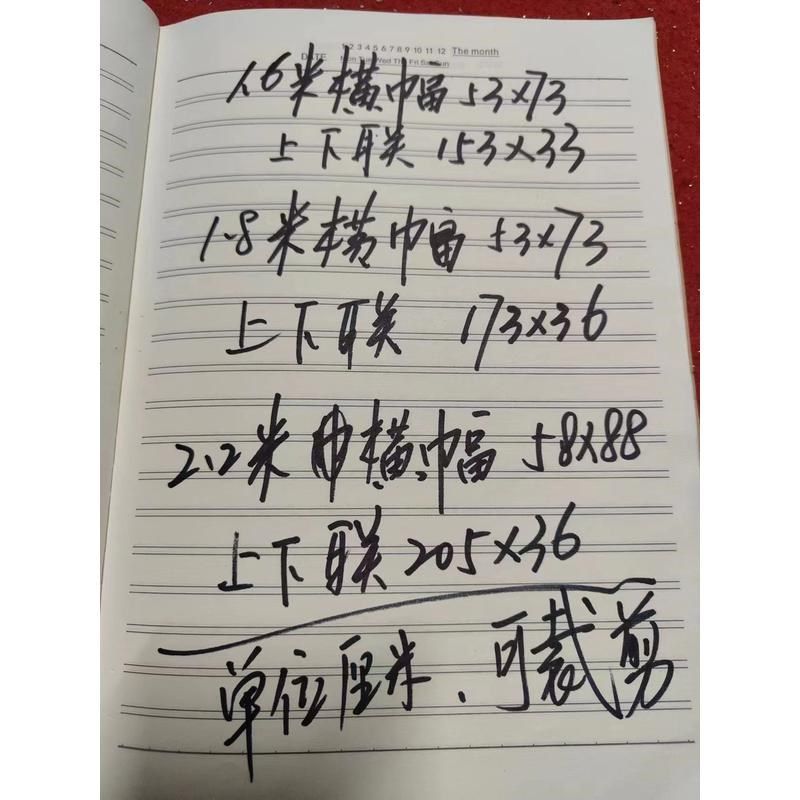 1 2 3 4 5 6 7 8 9 10 11 12 The month
DATE Mon Tue Wed Thu Fri Sat Sun
1.6米横幅 53×73
上下联 153×33
1.8米横幅 53×73
上下联 173×36
2.2米横幅 58×88
上下联 205×36
单位厘米、可裁剪